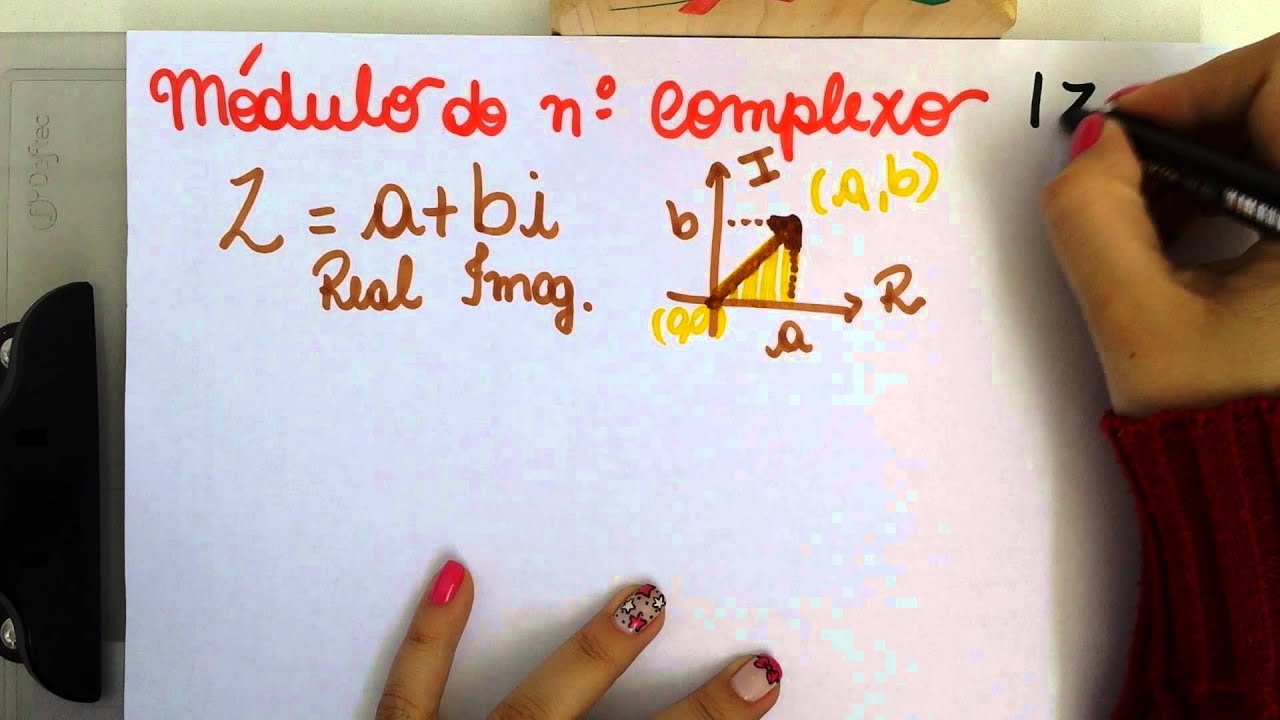 Módulo do nº complexo |Z
Z = a+bi
Real Imag.
I
(a,b)
b
R
(0,0)
a
Daftec